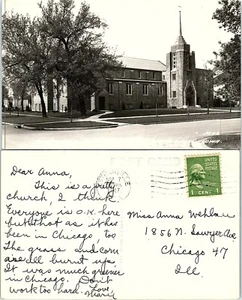 Dear Anna,
This is a pretty
church, I think.
Everyone is O.K. here
Just hot as it has
been in Chicago, too.
The grass and corn
are all burnt up.
It was much greener
in Chicago. Love
Don't work too hard. Marie
UNITED STATES POSTAGE
1 CENT 1
Miss Anna Wehlau
1856 N. Sawyer Ave
Chicago 47
Ill.